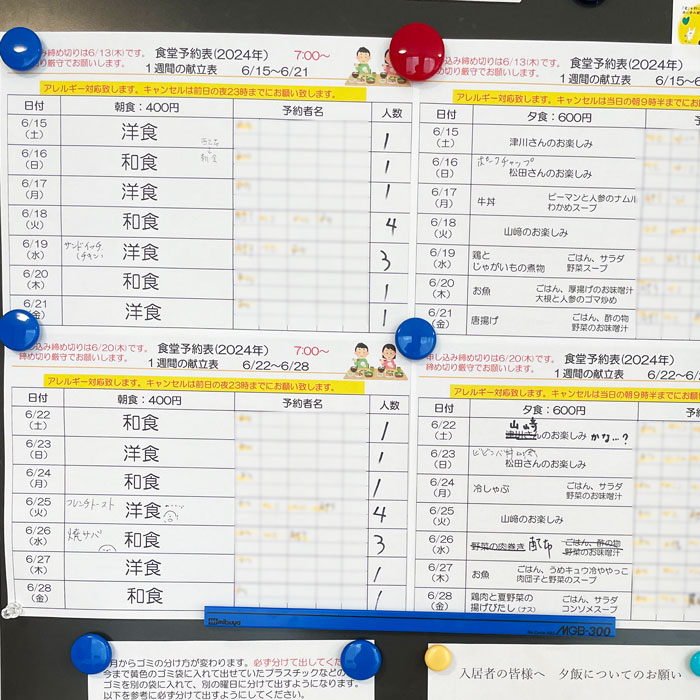 込み締め切りは6/13(木)です。 食堂予約表(2024年) 7:00～
切り厳守でお願いします。 1週間の献立表 6/15～6/21
アレルギー対応致します。キャンセルは前日の夜23時までにお願い致します。
日付 朝食：400円 予約者名 人数
6/15(土) 洋食 1
6/16(日) 和食 1
6/17(月) 洋食 1
6/18(火) 和食 4
6/19(水) サンドイッチ(チキン) 洋食 3
6/20(木) 和食 1
6/21(金) 洋食 1
し込み締め切りは6/13(木)です。 食堂予約表(2024年)
切り厳守でお願いします。 1週間の献立表 6/15～6
アレルギー対応致します。キャンセルは当日の朝9時半までにお願い致
日付 夕食：600円 予
6/15(土) 津川さんのお楽しみ
6/16(日) ポークチャップ 松田さんのお楽しみ
6/17(月) 牛丼 ピーマンと人参のナムル わかめスープ
6/18(火) 山﨑のお楽しみ
6/19(水) 鶏とじゃがいもの煮物 ごはん、サラダ 野菜スープ
6/20(木) お魚 ごはん、厚揚げのお味噌汁 大根と人参のゴマ炒め
6/21(金) 唐揚げ ごはん、酢の物 野菜のお味噌汁
し込み締め切りは6/20(木)です。 食堂予約表(2024年) 7:00～
締め切り厳守でお願いします。 1週間の献立表 6/22～6/28
アレルギー対応致します。キャンセルは前日の夜23時までにお願い致します。
日付 朝食：400円 予約者名 人数
6/22(土) 和食 1
6/23(日) 洋食 1
6/24(月) 和食 1
6/25(火) フレンチトースト 洋食 4
6/26(水) 焼サバ 和食 3
6/27(木) 洋食 1
6/28(金) 和食 1
申し込み締め切りは6/20(木)です。 食堂予約表(2024年)
締め切り厳守でお願いします。 1週間の献立表 6/22～6/2
アレルギー対応致します。キャンセルは当日の朝9時半までにお願い
日付 夕食：600円
6/22(土) 山崎 津川さんのお楽しみ かな…?
6/23(日) 松田さんのお楽しみ
6/24(月) 冷しゃぶ ごはん、サラダ 野菜のお味噌汁
6/25(火) 山﨑のお楽しみ
6/26(水) 野菜の肉巻き ごはん、酢の物 野菜のお味噌汁
6/27(木) お魚 ごはん、うめキュウ冷ややっこ 肉団子と野菜のスープ
6/28(金) 鶏肉と夏野菜の揚げびたし(ナス) ごはん、サラダ コンソメスープ
mitsuya MGB-300
月からゴミの分け方が変わります。必ず分けて出してくだ
今まで黄色のゴミ袋に入れて出せていたプラスチックなどの
ゴミを別の袋に入れて、別の曜日に分けて出すようになります。
以下を参考に必ず分けて出すようにしてください。
入居者の皆様へ 夕飯についてのお願い